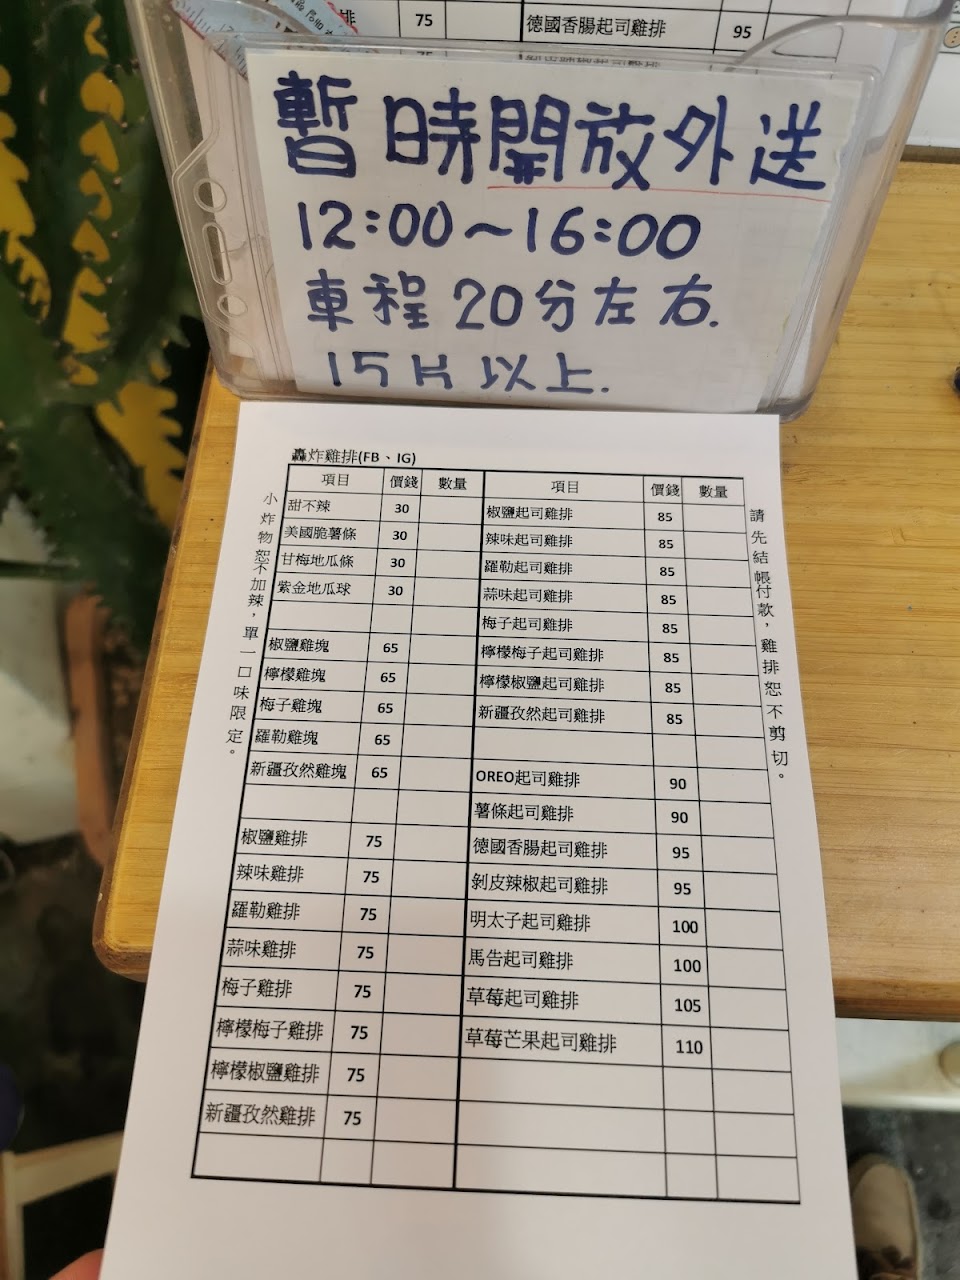 75 德國香腸起司雞排 95
暫時開放外送
12:00~16:00
車程20分左右.
15片以上.
轟炸雞排(FB、IG)
項目 價錢 數量 項目 價錢 數量
甜不辣 30 椒鹽起司雞排 85
美國脆薯條 30 辣味起司雞排 85
甘梅地瓜條 30 羅勒起司雞排 85
紫金地瓜球 30 蒜味起司雞排 85
梅子起司雞排 85
椒鹽雞塊 65 檸檬梅子起司雞排 85
檸檬雞塊 65 檸檬椒鹽起司雞排 85
梅子雞塊 65 新疆孜然起司雞排 85
羅勒雞塊 65
新疆孜然雞塊 65 OREO起司雞排 90
薯條起司雞排 90
椒鹽雞排 75 德國香腸起司雞排 95
辣味雞排 75 剝皮辣椒起司雞排 95
羅勒雞排 75 明太子起司雞排 100
蒜味雞排 75 馬告起司雞排 100
梅子雞排 75 草莓起司雞排 105
檸檬梅子雞排 75 草莓芒果起司雞排 110
檸檬椒鹽雞排 75
新疆孜然雞排 75
小炸物恕不加辣，單一口味限定。
請先結帳付款，雞排恕不剪切。